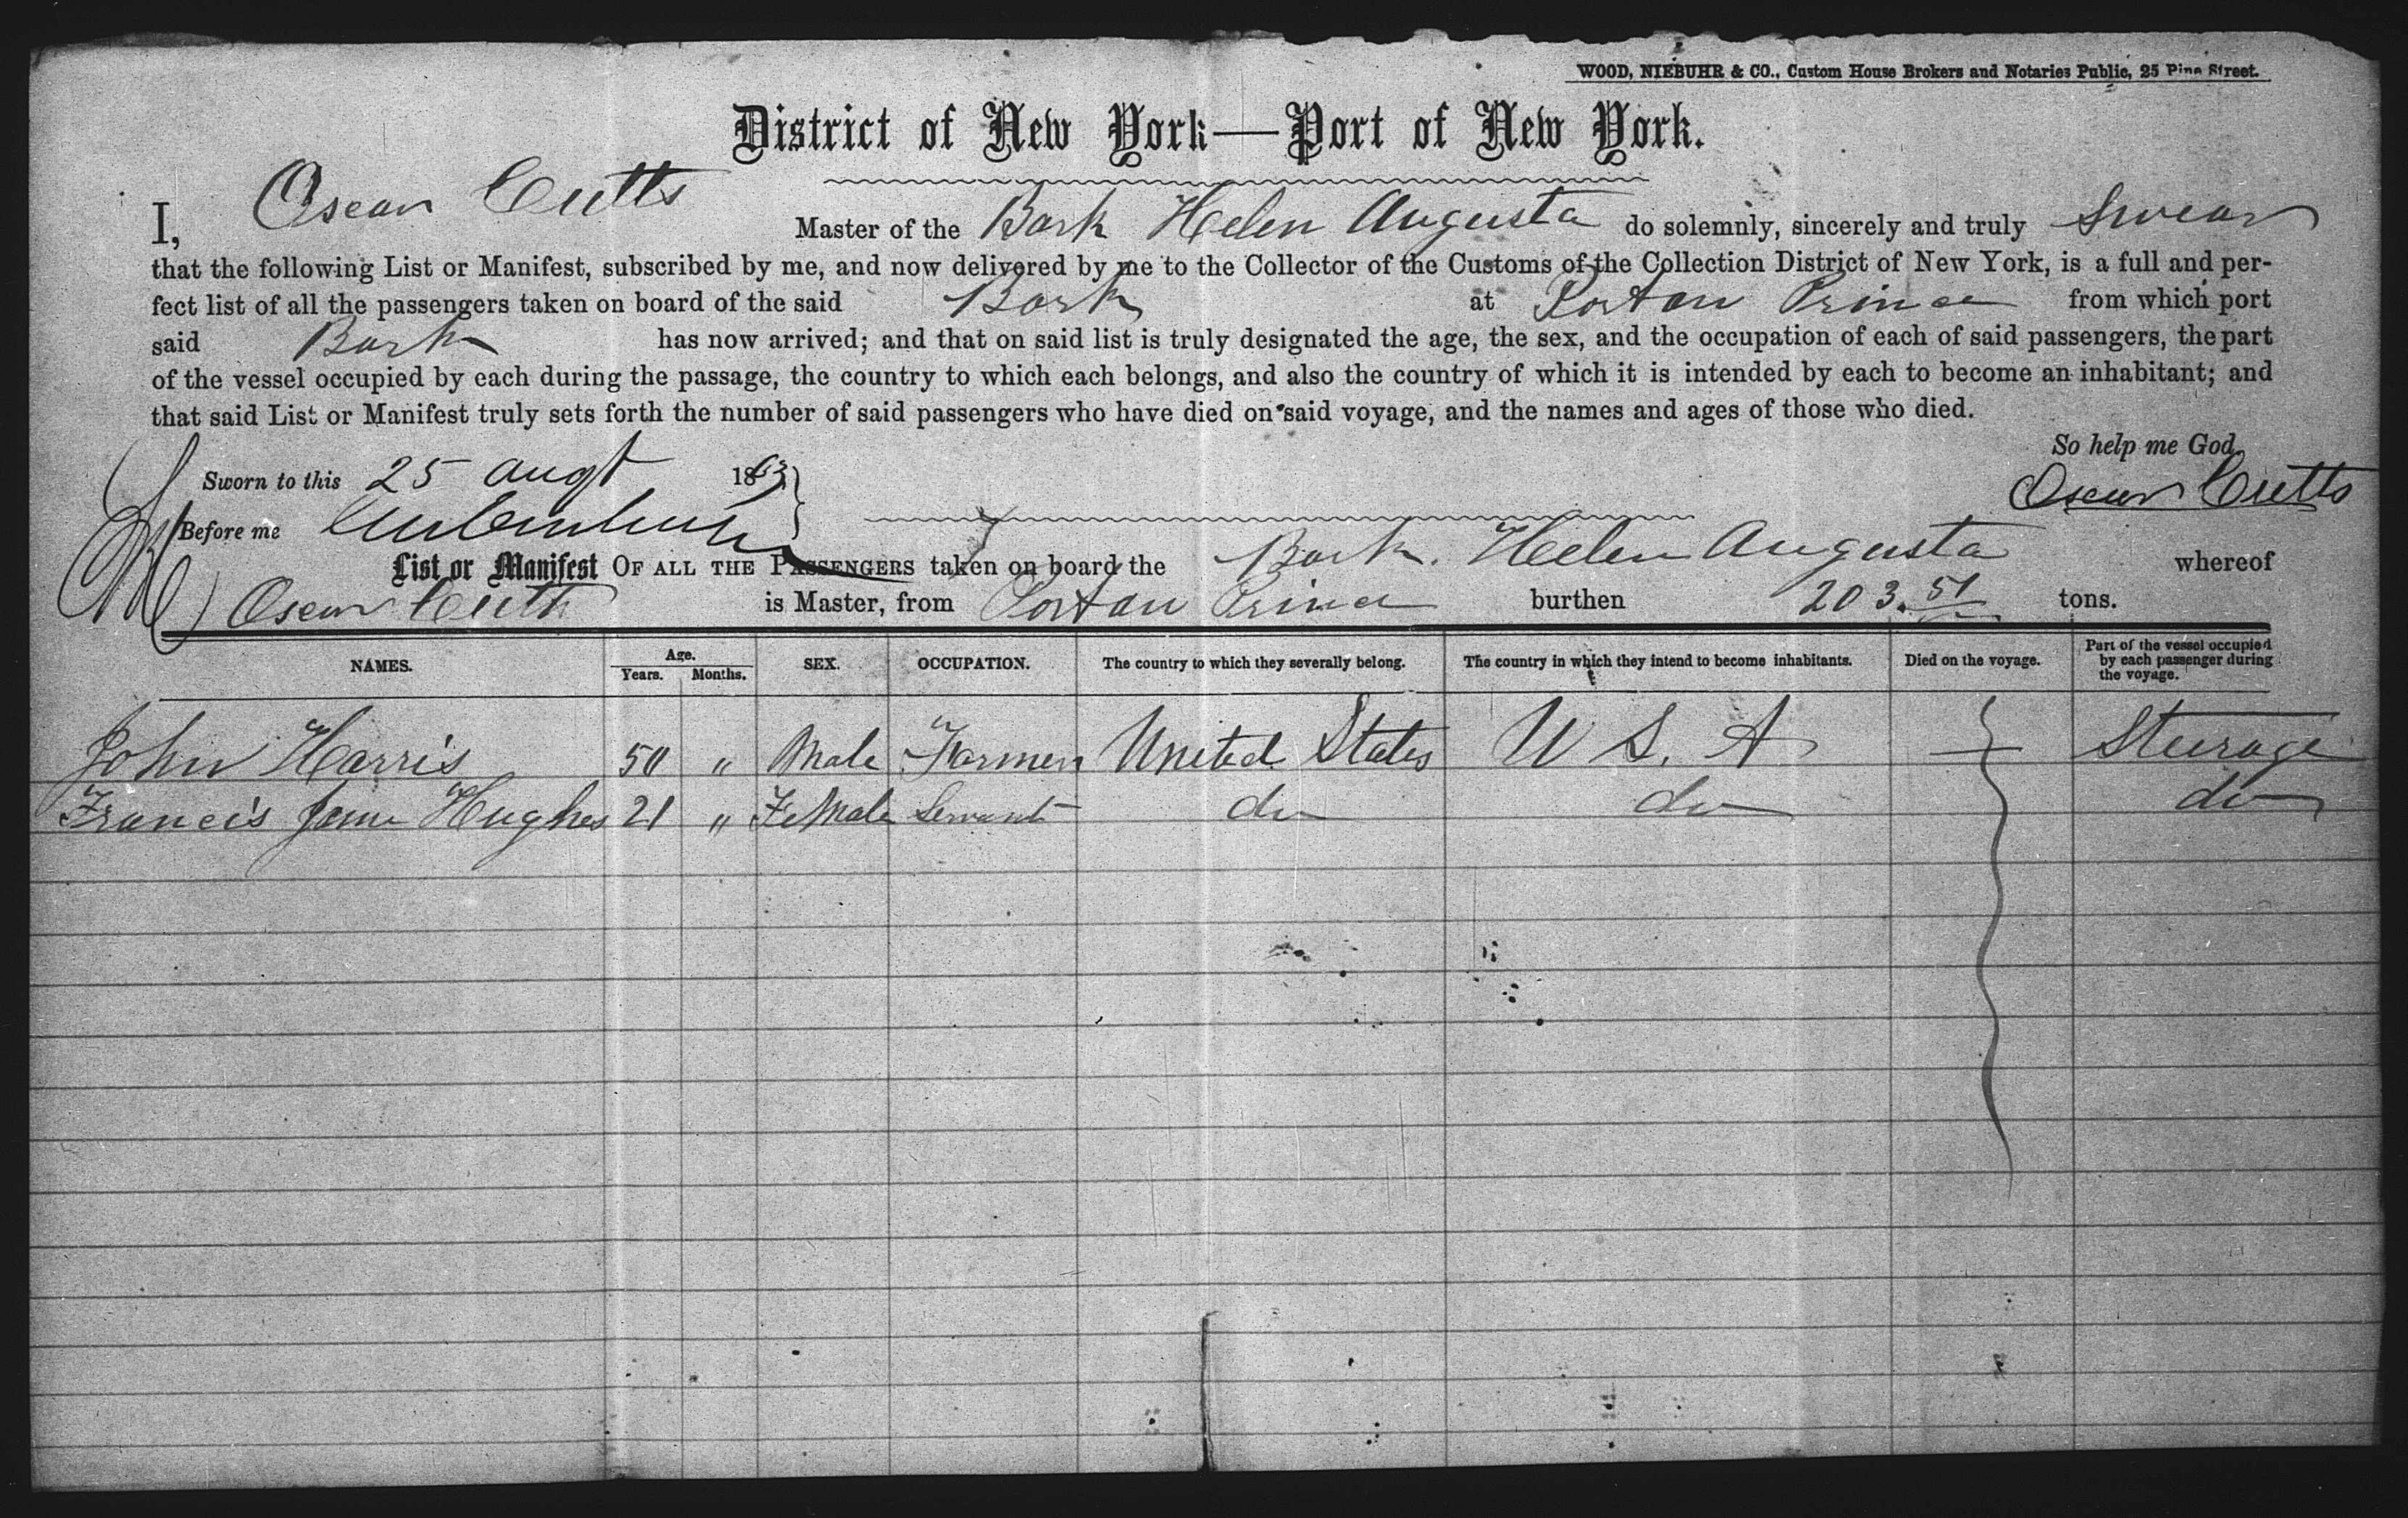 WOOD, NIEBUHR & CO., Custom House Brokers and Notaries Public, 25 Pine Street.
District of New York—Port of New York.
I, Oscar Cutts Master of the Bark Helen Augusta do solemnly, sincerely and truly Swear
that the following List or Manifest, subscribed by me, and now delivered by me to the Collector of the Customs of the Collection District of New York, is a full and per-
fect list of all the passengers taken on board of the said Bark at Port au Prince from which port
said Bark has now arrived; and that on said list is truly designated the age, the sex, and the occupation of each of said passengers, the part
of the vessel occupied by each during the passage, the country to which each belongs, and also the country of which it is intended by each to become an inhabitant; and
that said List or Manifest truly sets forth the number of said passengers who have died on said voyage, and the names and ages of those who died.
So help me God.
Sworn to this 25 Augt 1863 Oscar Cutts
Before me
List or Manifest OF ALL THE PASSENGERS taken on board the Bark. Helen Augusta whereof
Oscar Cutts is Master, from Port au Prince burthen 203.51 tons.
NAMES. Age. Years. Months. SEX. OCCUPATION. The country to which they severally belong. The country in which they intend to become inhabitants. Died on the voyage. Part of the vessel occupied by each passenger during the voyage.
John Harris 50 " Male Farmer United States U S. A Steerage
Francis Jane Hughes 21 " FeMale Servant do do do